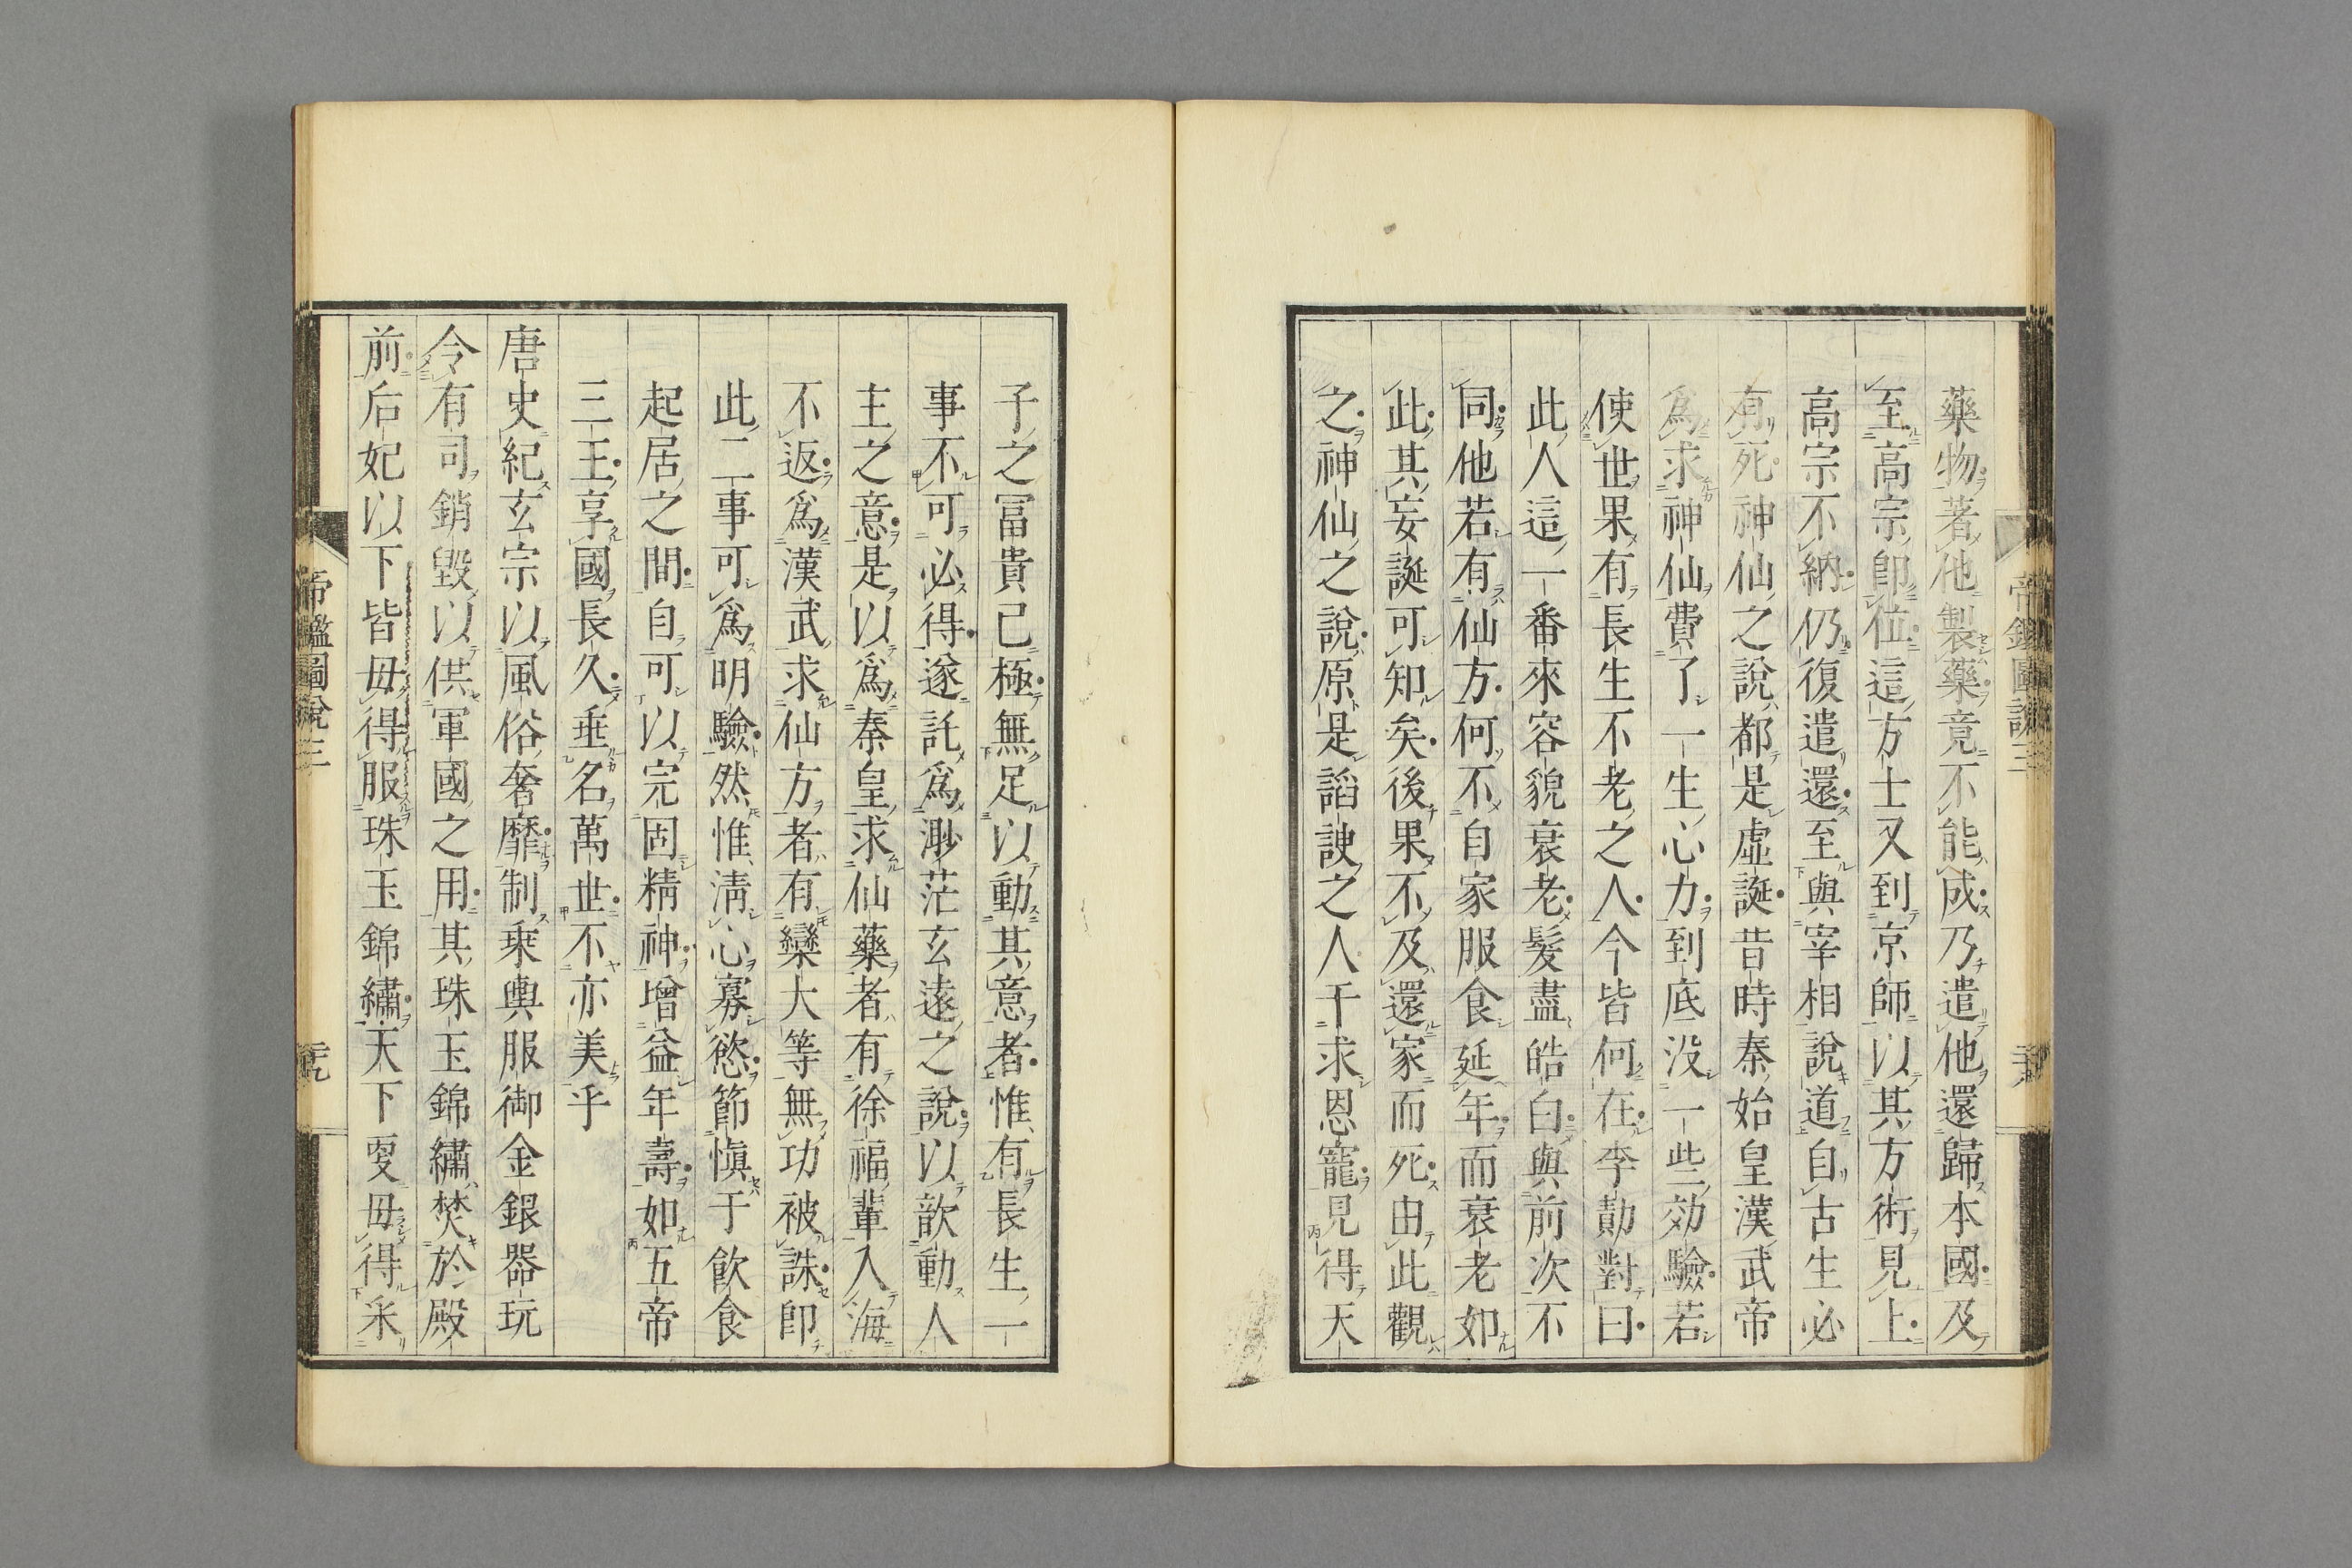 藥物著他製藥竟不能成乃遣他還歸本國及
至高宗即位這方士又到京師以其方術見上
高宗不納仍復遣還至與宰相說道自古生必
有死神仙之說都是虛誕昔時秦始皇漢武帝
爲求神仙費了一生心力到底没一些効驗若
使世果有長生不老之人今皆何在李勣對曰
此人這一番來容貌衰老髮盡皓白與前次不
同他若有仙方何不自家服食延年而衰老如
此其妄誕可知矣後果不及還家而死由此觀
之神仙之說原是謟諛之人干求恩寵見得天
子之冨貴已極無足以動其意者惟有長生一
事不可必得遂託爲渺茫玄遠之說以歆動人
主之意是以爲秦皇求仙藥者有徐福輩入海
不返爲漢武求仙方者有欒大等無功被誅即
此二事可爲明驗然惟清心寡慾節愼于飲食
起居之間自可以完固精神增益年壽如五帝
三王享國長久垂名萬世不亦美乎
唐史紀玄宗以風俗奢靡制乘輿服御金銀器玩
令有司銷毀以供軍國之用其珠玉錦繡焚於殿
前后妃以下皆毋得服珠玉錦繡天下更毋得采
帝鑑圖說三